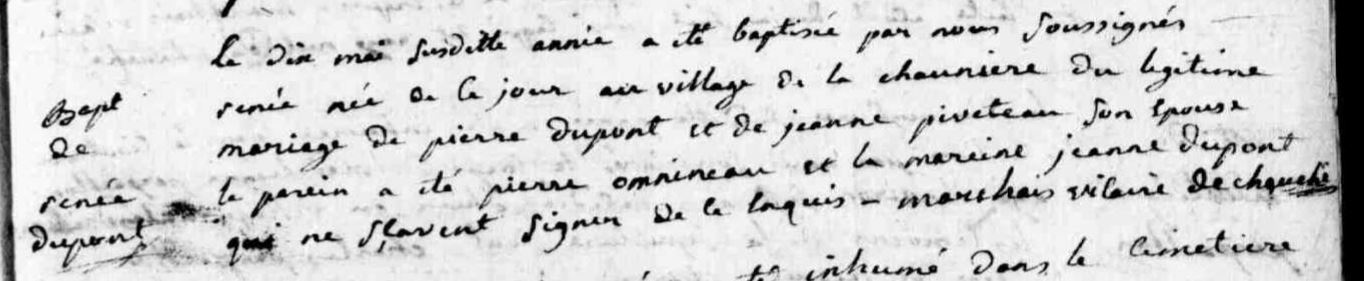 le dix mai susditte année a été baptisée par nous soussignés
Bapt
renée née de ce jour au village de la chauniere du legitime
de
mariage de pierre dupont et de jeanne piveteau son epouse
renée
le parein a été pierre omnineau et la mareine jeanne dupont
dupont
qui ne sçavent signer de ce enquis - marchais vicaire de chauché
inhumé dans le cimetiere